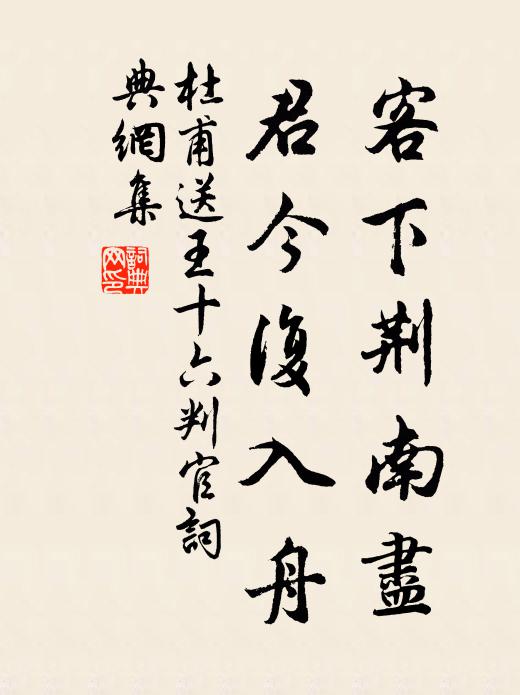 客下荆南盡
君今復入舟
杜甫送王十六判官詞
典網集
詞典
网印